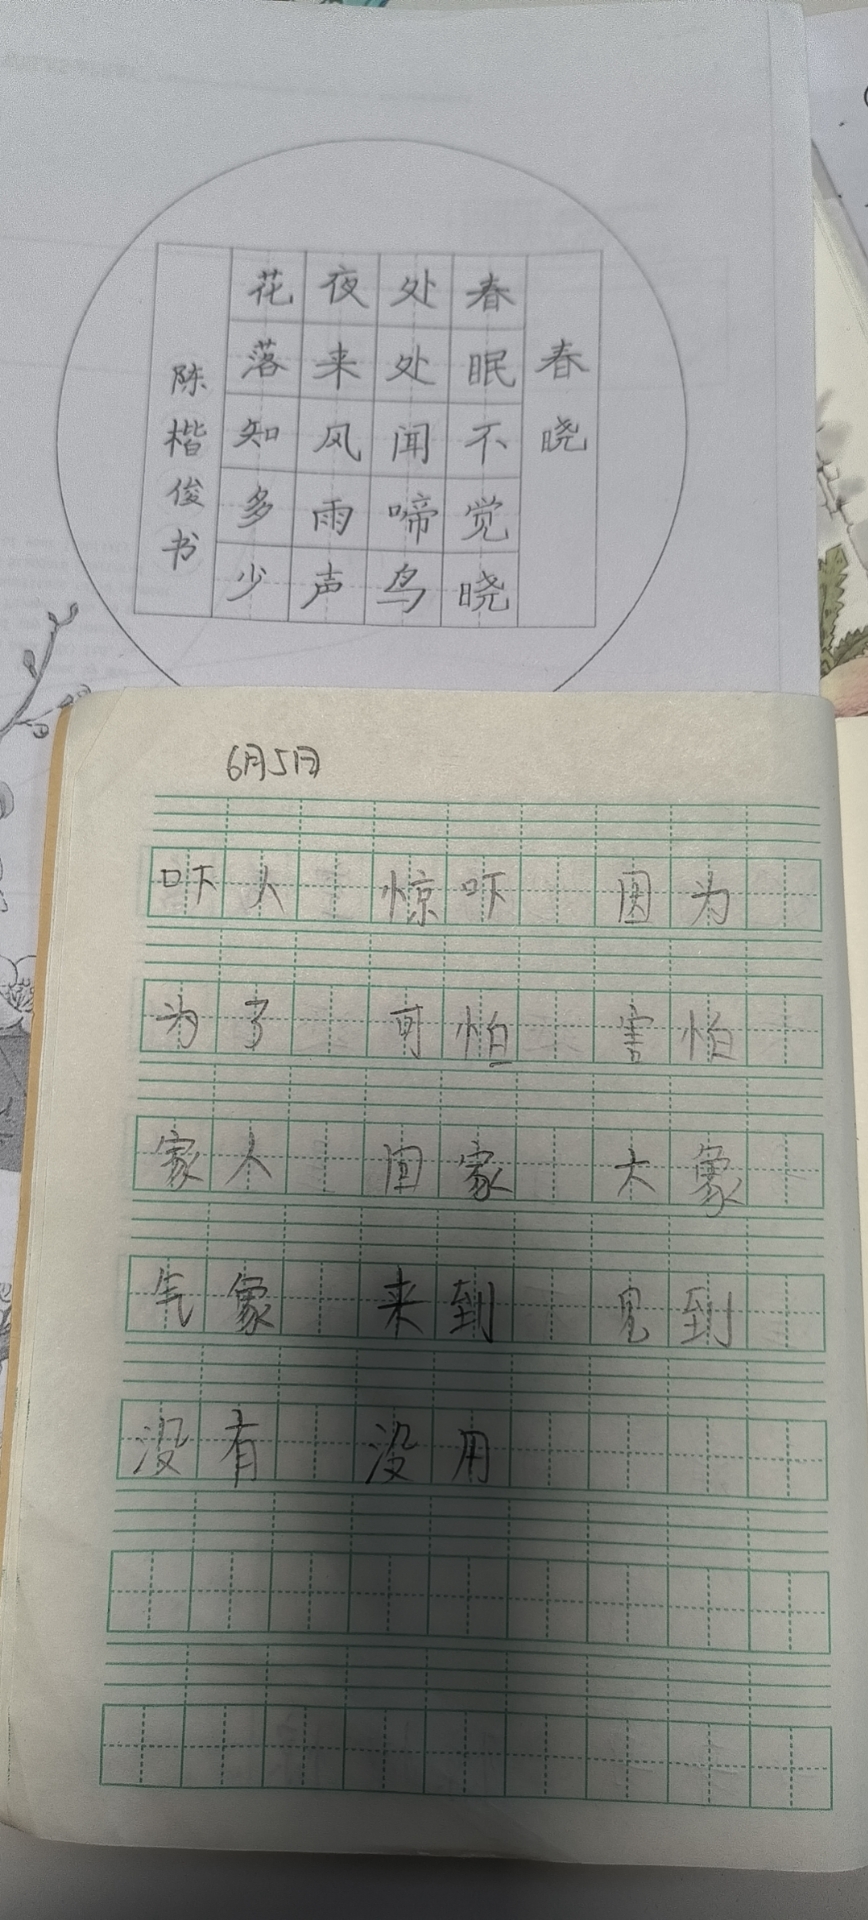 春晓
春眠不觉晓
处处闻啼鸟
夜来风雨声
花落知多少
陈楷俊书
6月5日
吓人 惊吓 因为
为了 可怕 害怕
家人 回家 大象
气象 来到 见到
没有 没用